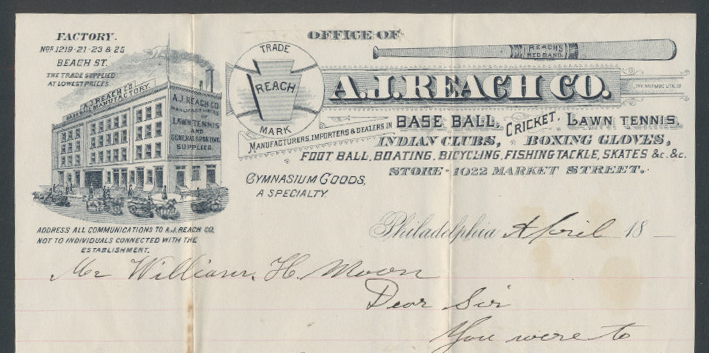 FACTORY.
NOS. 1219-21-23 & 25
BEACH ST.
THE TRADE SUPPLIED
AT LOWEST PRICES.
A.J. REACH CO.
BASE BALL MANUFACTORY.
A.J. REACH CO.
MANUFACTURERS
LAWN TENNIS
AND
GENERAL SPORTING
SUPPLIES.
ADDRESS ALL COMMUNICATIONS TO A.J. REACH CO.
NOT TO INDIVIDUALS CONNECTED WITH THE
ESTABLISHMENT.
OFFICE OF
REACH'S
RED BAND
TRADE
REACH
MARK
A.J. REACH CO.
MANUFACTURERS, IMPORTERS & DEALERS IN
BASE BALL, CRICKET, LAWN TENNIS,
INDIAN CLUBS, BOXING GLOVES,
FOOT BALL, BOATING, BICYCLING, FISHING TACKLE, SKATES &c. &c.
GYMNASIUM GOODS,
A SPECIALTY.
STORE - 1022 MARKET STREET.
Philadelphia April 18 —
Mr William H. Moon
Dear Sir
You were to